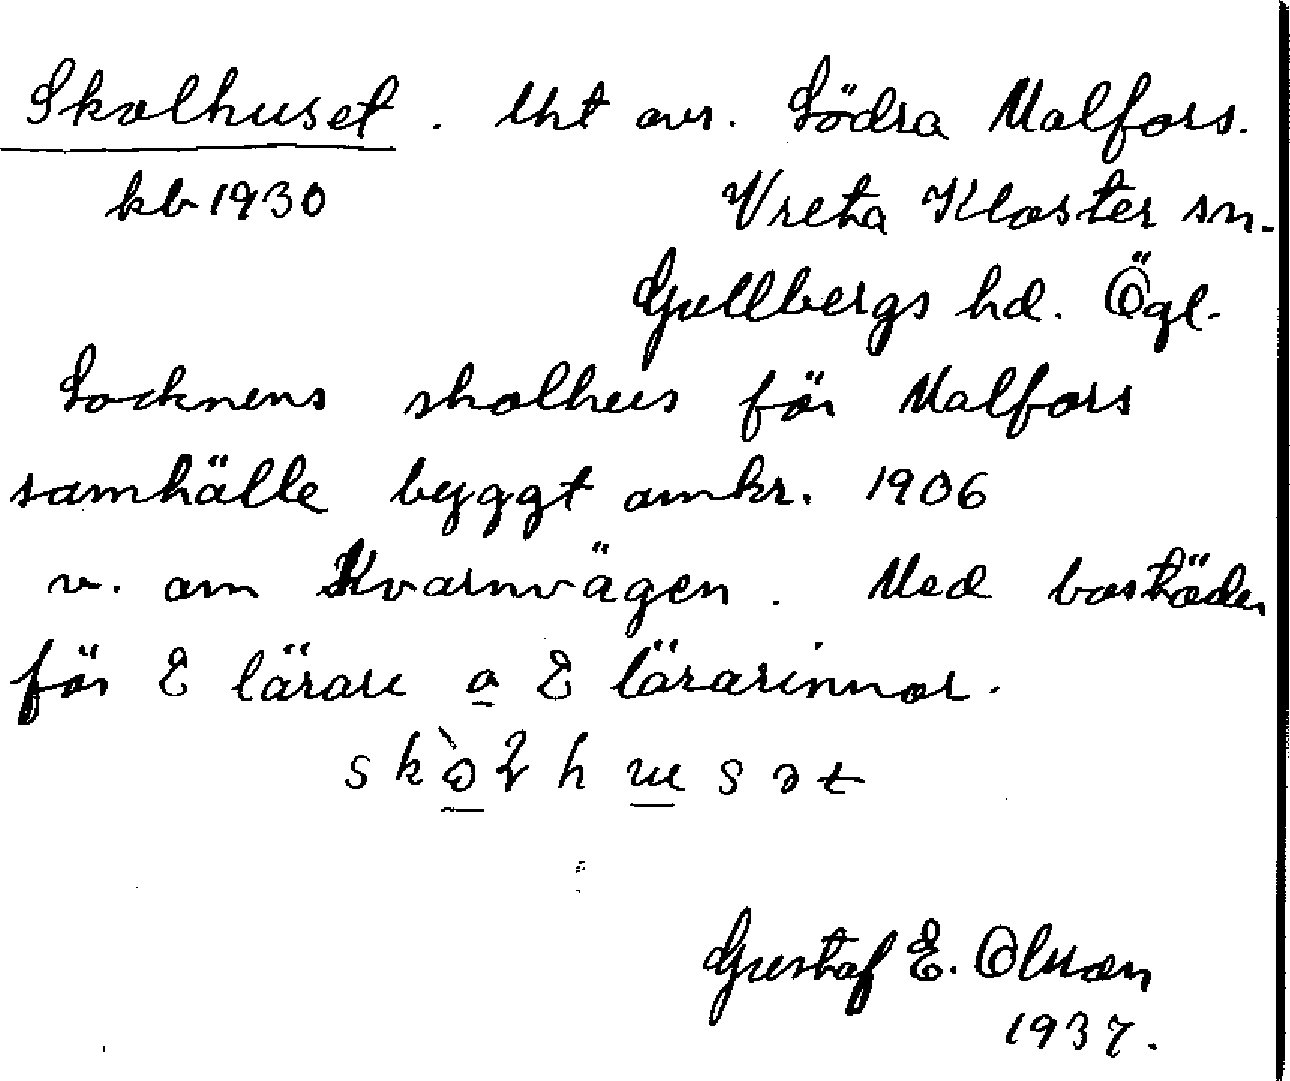 Skolhuset. Lht avs. Södra Malfors.
kb 1930 Vreta Kloster sn.
Gullbergs hd. Ögl.
Socknens skolhus för Malfors
samhälle byggt omkr. 1906
v. om Kvarnvägen. Med bostäder
för 2 lärare o 2 lärarinnor.
Gustaf E. Olsson
1937.